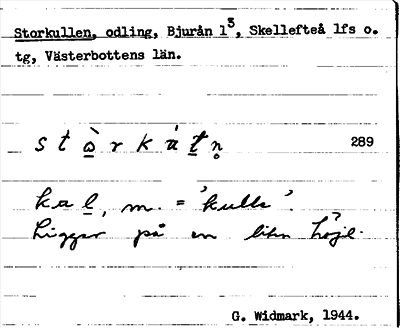 Storkullen, odling, Bjurån 1³, Skellefteå lfs o.
tg, Västerbottens län.
289
kal, m. = 'kulle'.
Ligger på en liten höjd.
G. Widmark, 1944.